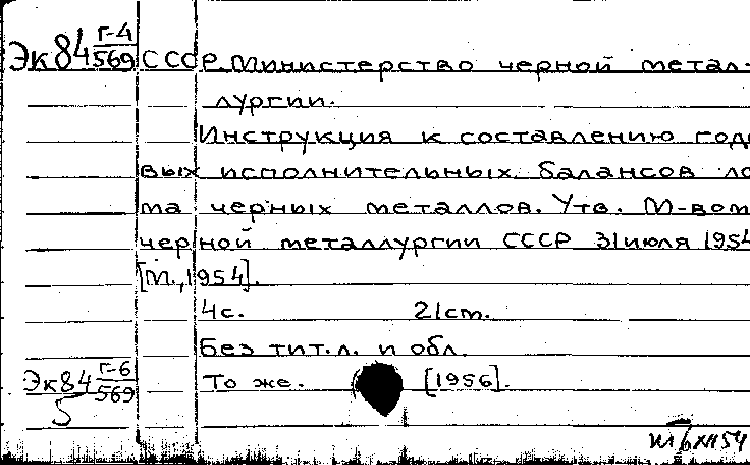 Эк84 Г-4/569 СССР. Министерство черной метал-
лургии.
Инструкция к составлению годо
вых исполнительных балансов ло
ма черных металлов. Утв. М-вом
черной металлургии СССР 31 июля 1954
[М., 1954].
4с. 21см.
Без тит.л. и обл.
Эк84 Г-6/569 То же. [1956].
5